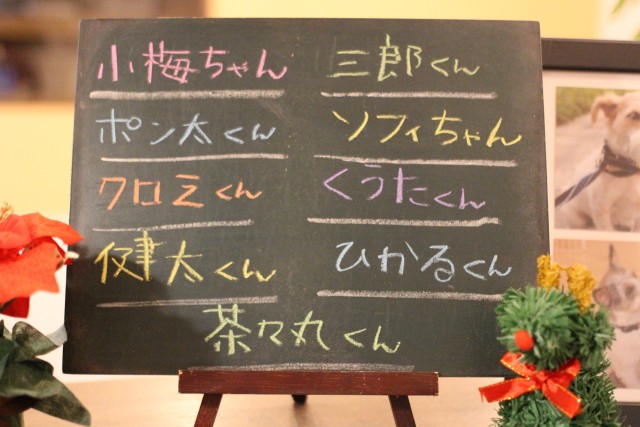 小梅ちゃん
三郎くん
ポン太くん
ソフィちゃん
クロミくん
くうたくん
健太くん
ひかるくん
茶々丸くん